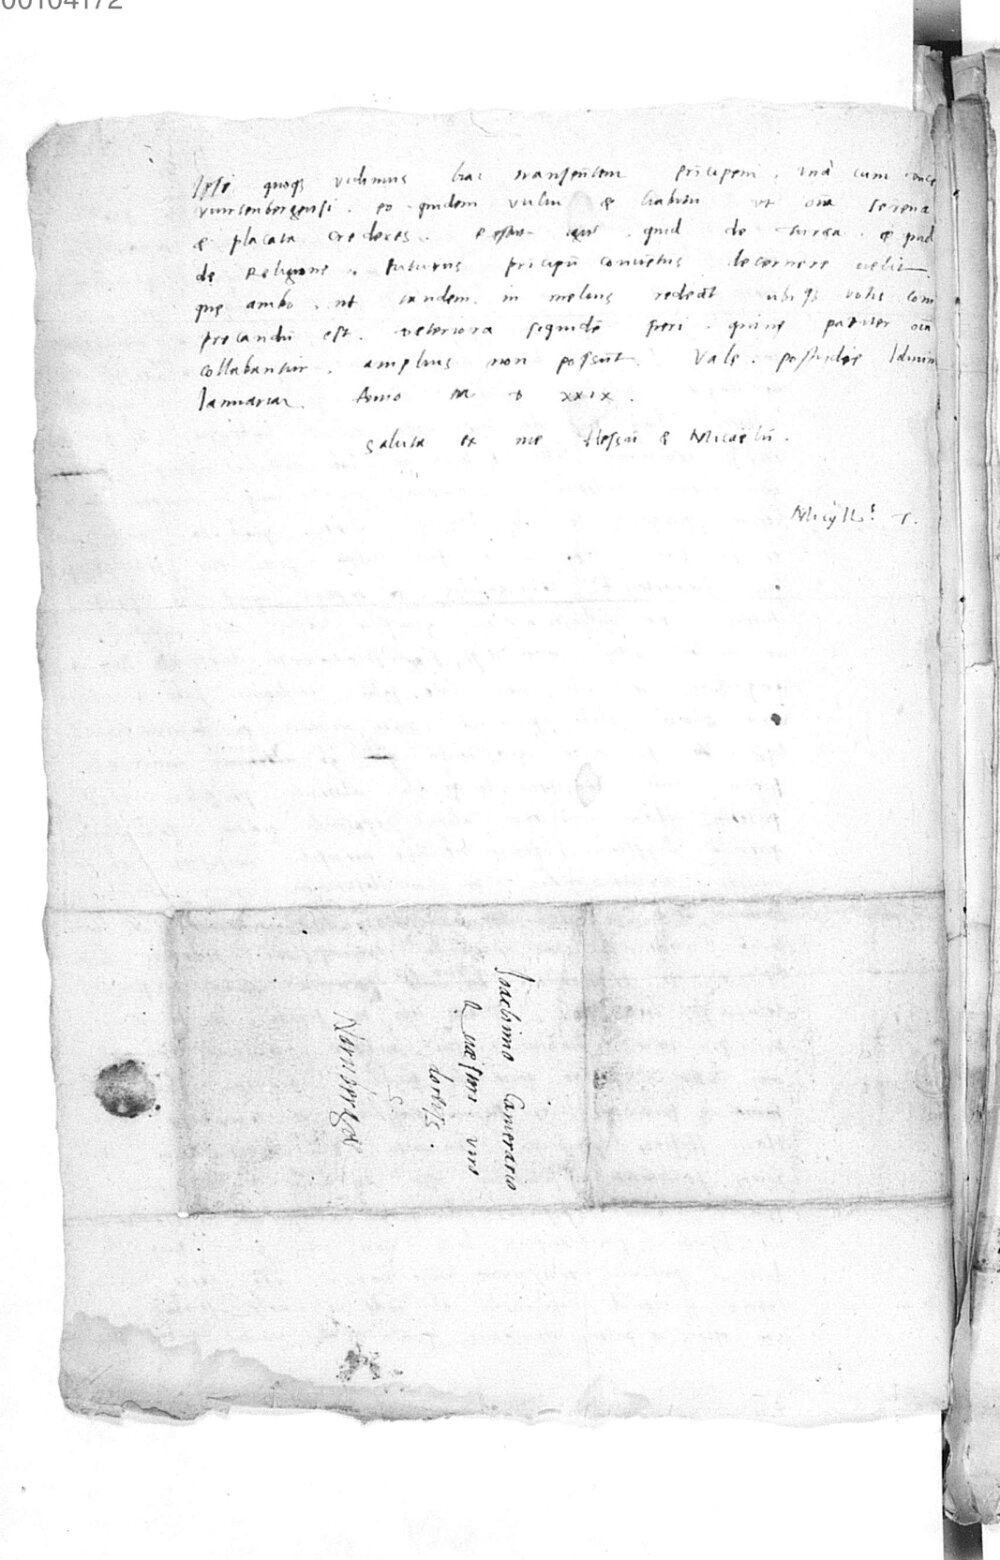 00104172
Ipsi quoqꝫ vidimus hac transeuntem principem . una cum duce
vuirtenbergensi . eo quidem vultu & habitu ut oīa serena
& placata crederes . quid de turca . & quid
de Religione . futurus principū conventus decernere velit
quę ambo . ut tandem in melius redeāt votis com
precandū est . Deteriora siquidē fieri . pariter oīa
collabantur . amplius non possūt . Vale . postridie Iduum
Ianuariar. Anno M D XXIX .
Saluta ex me Hessū & Micaëlū .
Micyllꝰ T.
Ioachimo Camerario
Quæstori viro
doctiss.
S.
Norembergæ